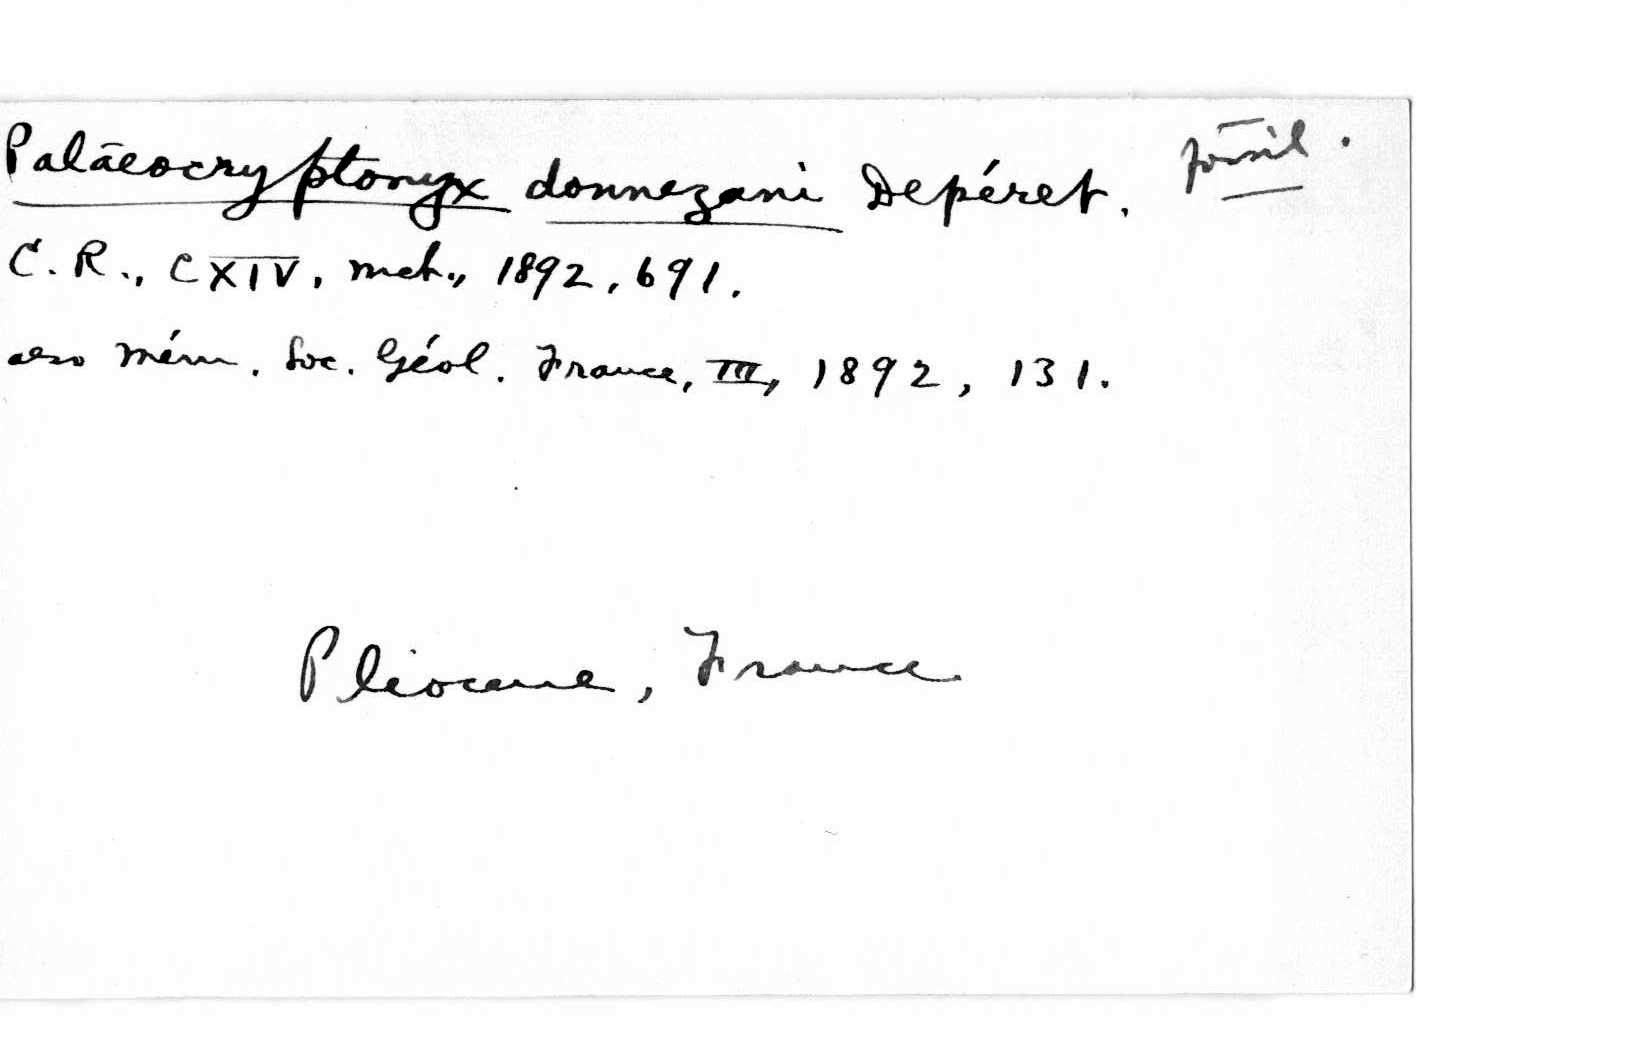 Palaeocryptonyx donnezani Depéret. fossil.
C. R., CXIV, mch., 1892, 691.
also Mém. Soc. Géol. France, III, 1892, 131.
Pliocene, France